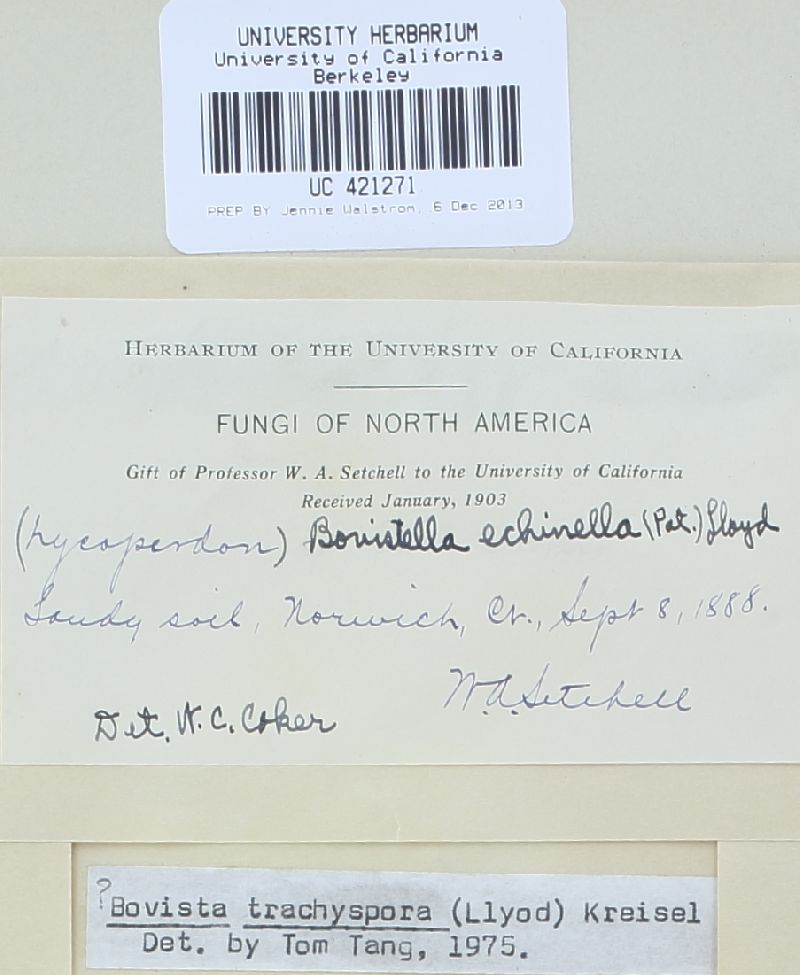 UNIVERSITY HERBARIUM
University of California
Berkeley
UC 421271
PREP BY Jennie Walstrom, 6 Dec 2013
HERBARIUM OF THE UNIVERSITY OF CALIFORNIA
FUNGI OF NORTH AMERICA
Gift of Professor W. A. Setchell to the University of California
Received January, 1903
(Lycoperdon) Bovistella echinella (Pat.) Lloyd
Sandy soil, Norwich, Ct., Sept 8, 1888.
W.A. Setchell
Det. W. C. Coker
? Bovista trachyspora (Llyod) Kreisel
Det. by Tom Tang, 1975.